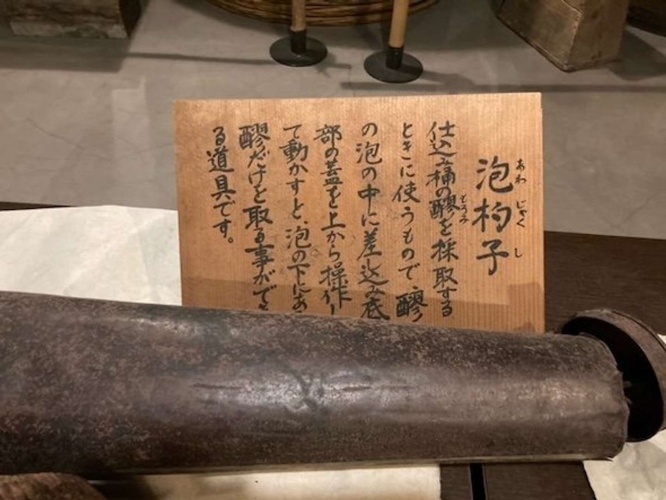 泡杓子
あわ じゃく し
仕込桶の醪を採取する
どうみ
ときに使うもので、醪
の泡の中に差し込み底
部の蓋を上から操作し
て動かすと、泡の下にあ
醪だけを取る事ができ
る道具です。